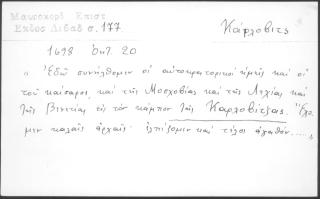 Μαυροκορδ Επιστ
Εκδος Λιβαδ σ. 177
Κάρλοβιτς
1698 Οκτ 20
"Εδώ συνήλθομεν οι αυτοκρατορικοί ημείς και οι
του καίσαρος, και της Μοσχοβίας και της Λεχίας και
της Βενετίας εις τον κάμπον της Καρλοβίτζας. Έχο-
μεν καλαίς αρχαίς· ελπίζομεν και τέλος αγαθόν.....